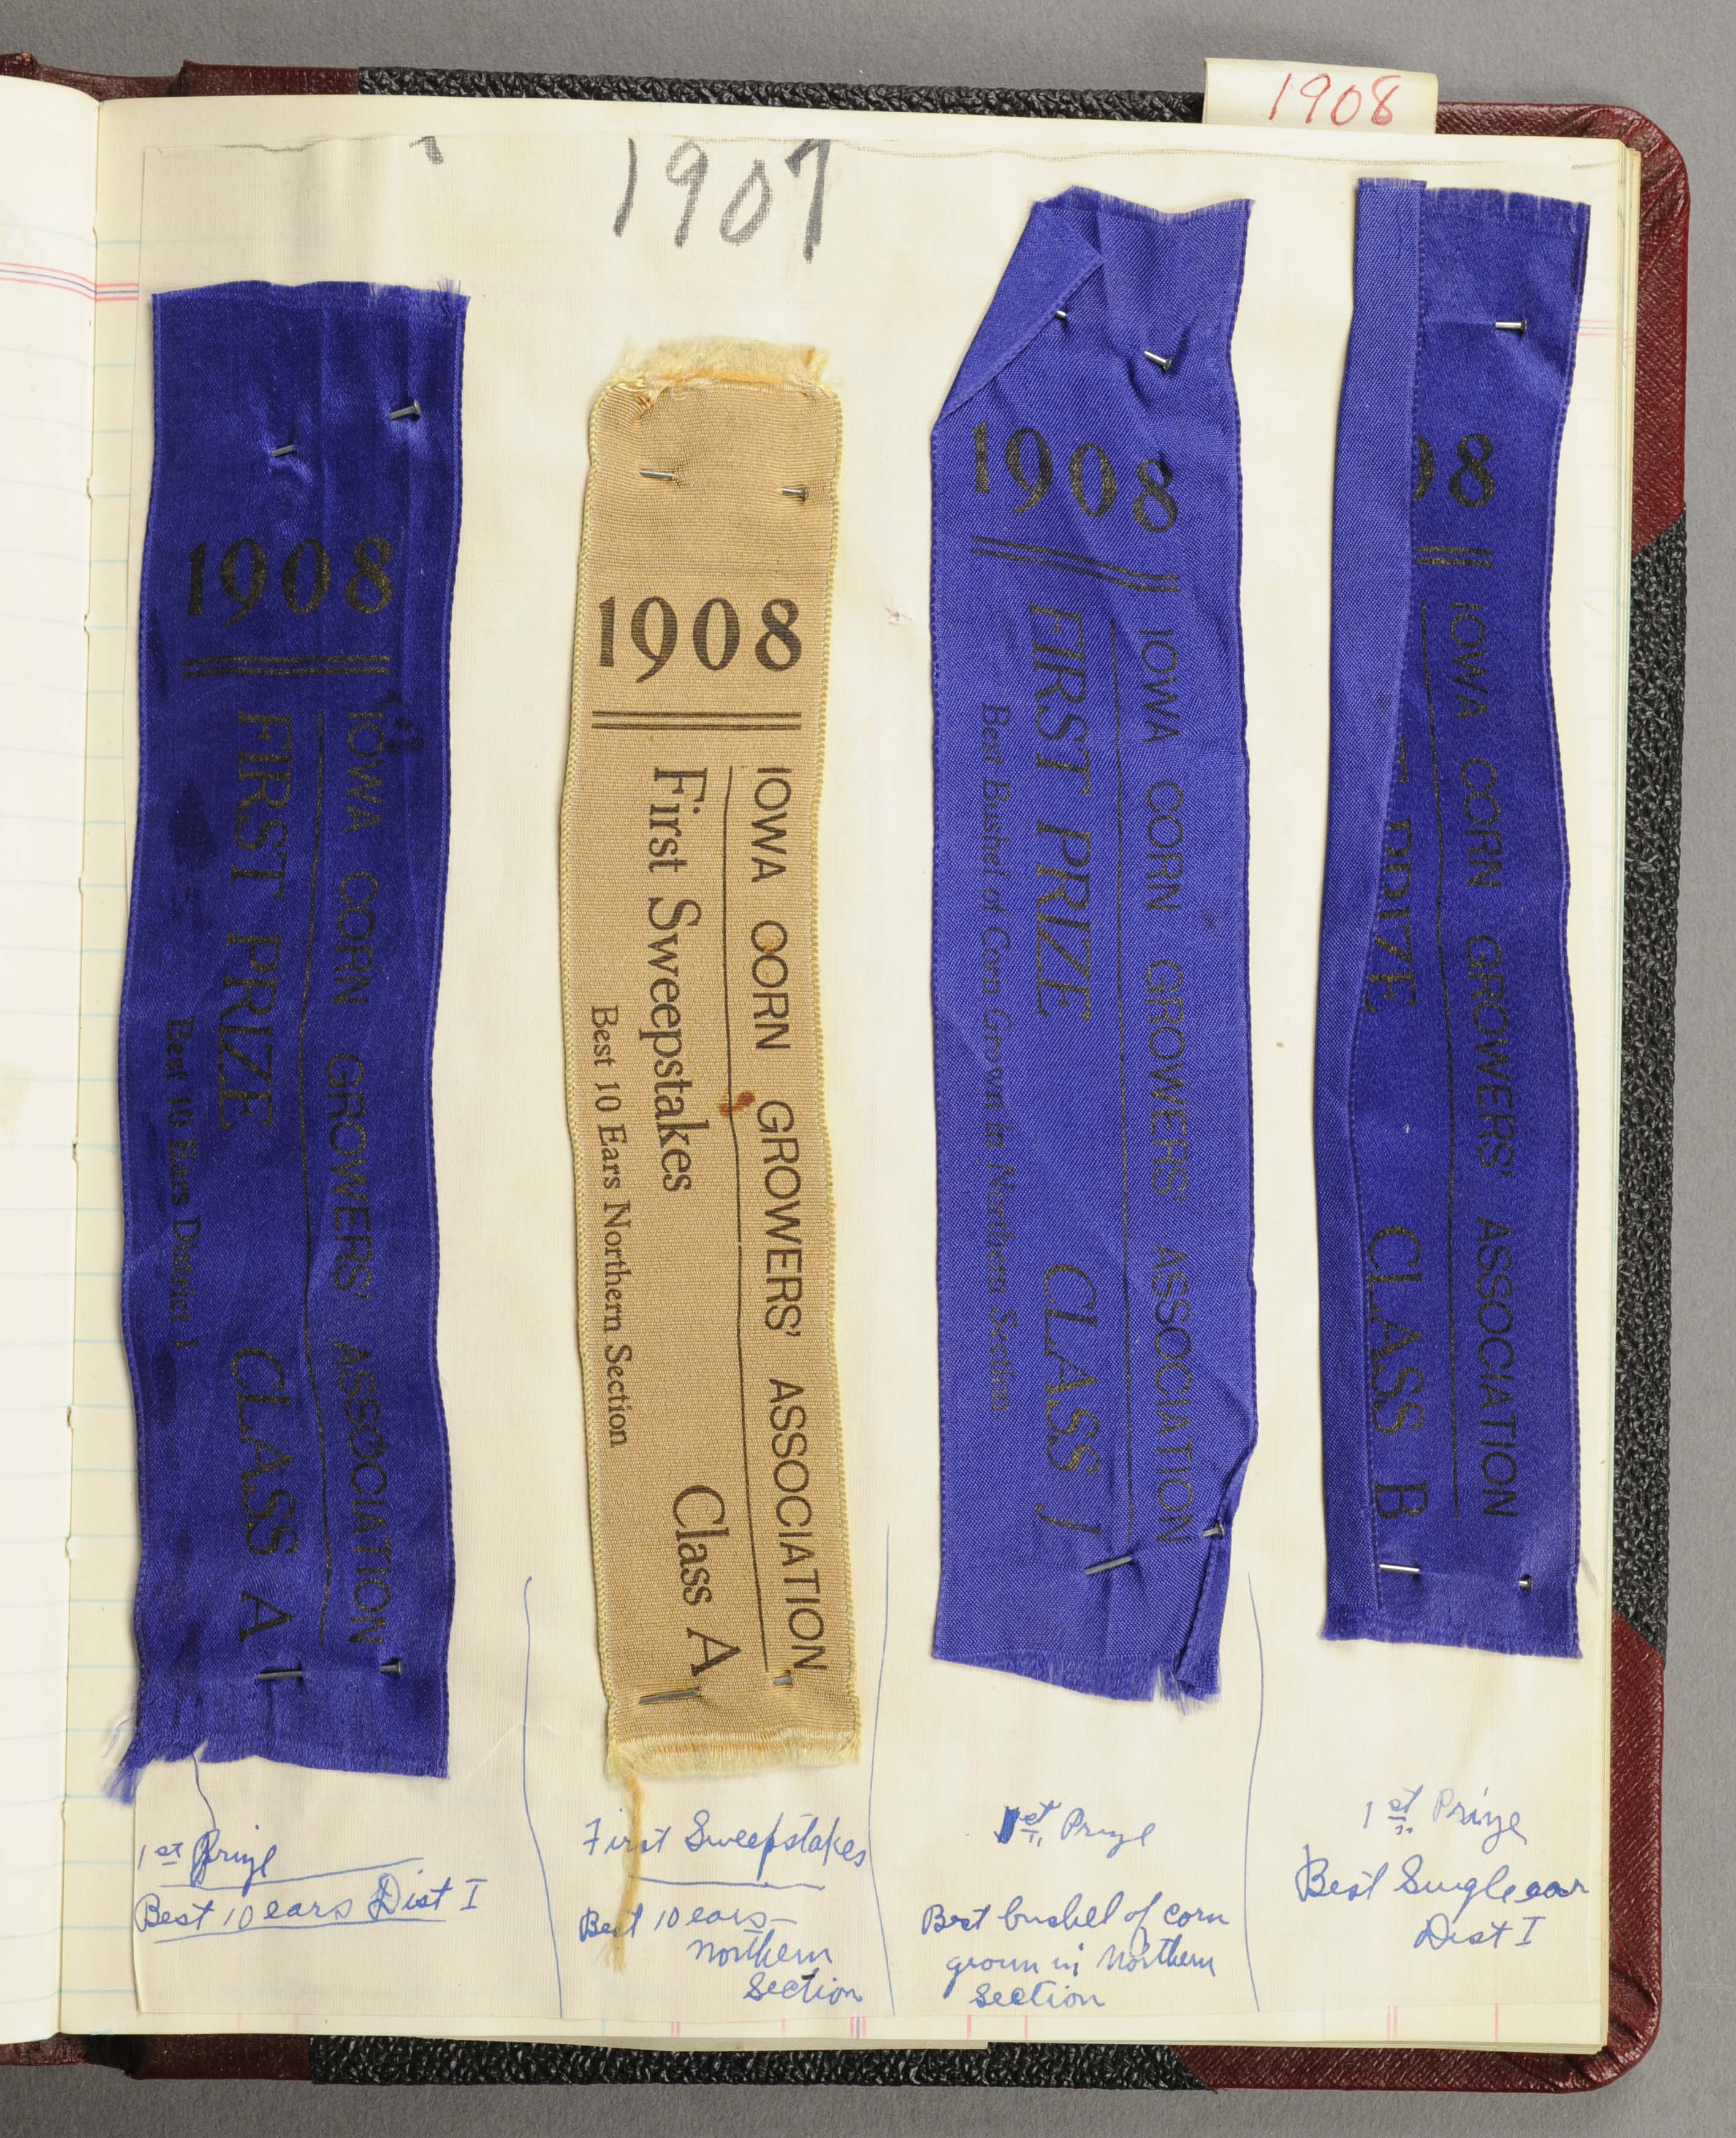 1908
1907
1908
IOWA CORN GROWERS' ASSOCIATION
FIRST PRIZE CLASS A
Best 10 Ears District 1
1908
IOWA CORN GROWERS' ASSOCIATION
First Sweepstakes Class A
Best 10 Ears Northern Section
1908
IOWA CORN GROWERS' ASSOCIATION
FIRST PRIZE CLASS J
Best Bushel of Corn Grown in Northern Section
8
IOWA CORN GROWERS' ASSOCIATION
PRIZE CLASS B
1st Prize
Best 10 ears Dist I
First Sweepstakes
Best 10 ears—
Northern
Section
1st Prize
Best bushel of corn
grown in Northern
Section
1st Prize
Best Single ear
Dist I